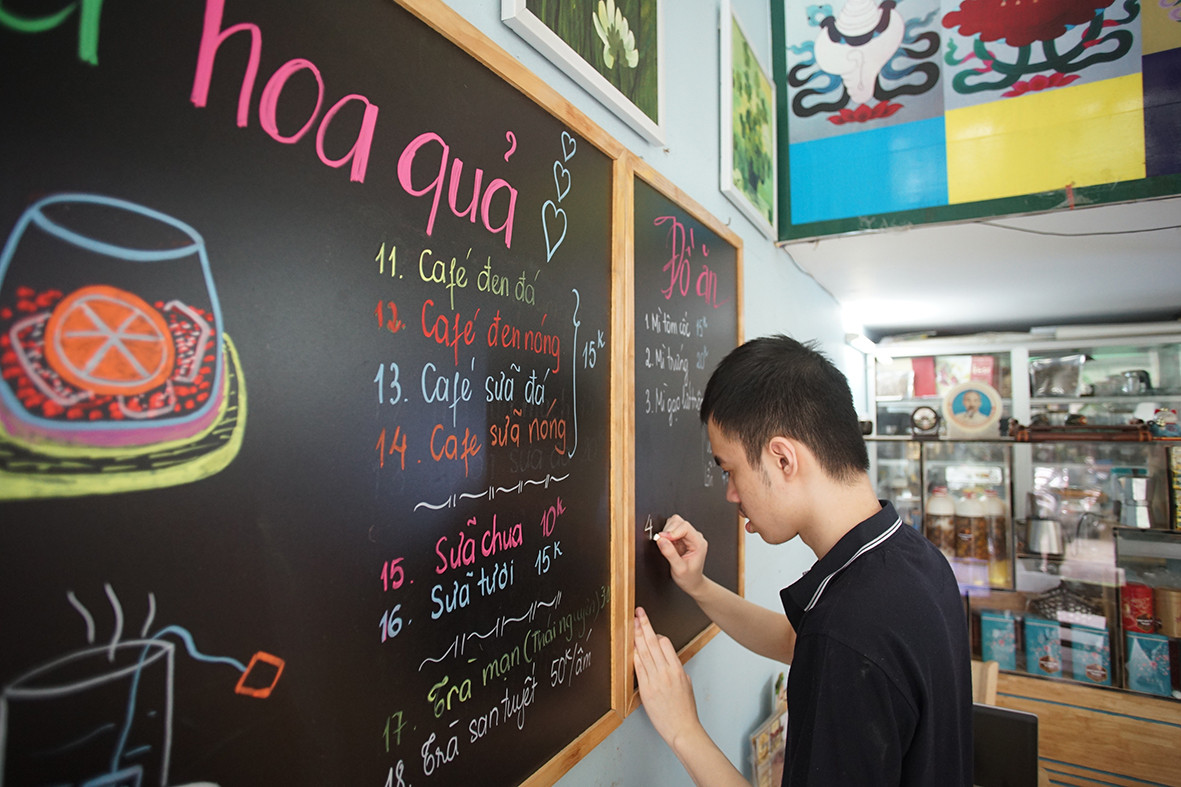 hoa quả
11. Café đen đá
12. Café đen nóng
13. Café sữa đá
14. Cafe sữa nóng
15k
15. Sữa chua 10k
16. Sữa tươi 15k
17. Trà mạn (Thái nguyên)
18. Trà san tuyết 50k/ấm
Đồ ăn
1. Mì tôm cốc 15k
2. Mì trứng
3. Mì gạo
4